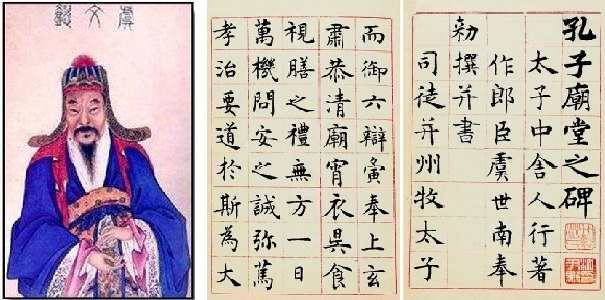 虞文懿
孔子廟堂之碑
太子中舍人行著
作郎臣虞世南奉
勑撰并書
司徒并州牧太子
而御六辯寅奉上玄
肅恭清廟宵衣昃食
視膳之禮無方一日
萬機問安之誠弥篤
孝治要道於斯為大